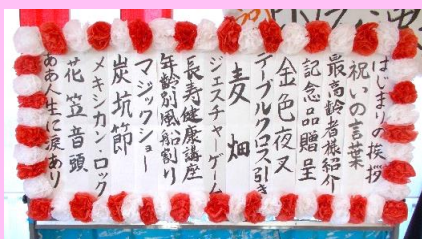 はじまりの挨拶
祝いの言葉
最高齢者様紹介
記念品贈呈
金色夜叉
テーブルクロス引き
麦畑
ジェスチャーゲーム
長寿健康講座
年齢別風船割り
マジックショー
炭坑節
メキシカン・ロック
花笠音頭
ああ人生に涙あり